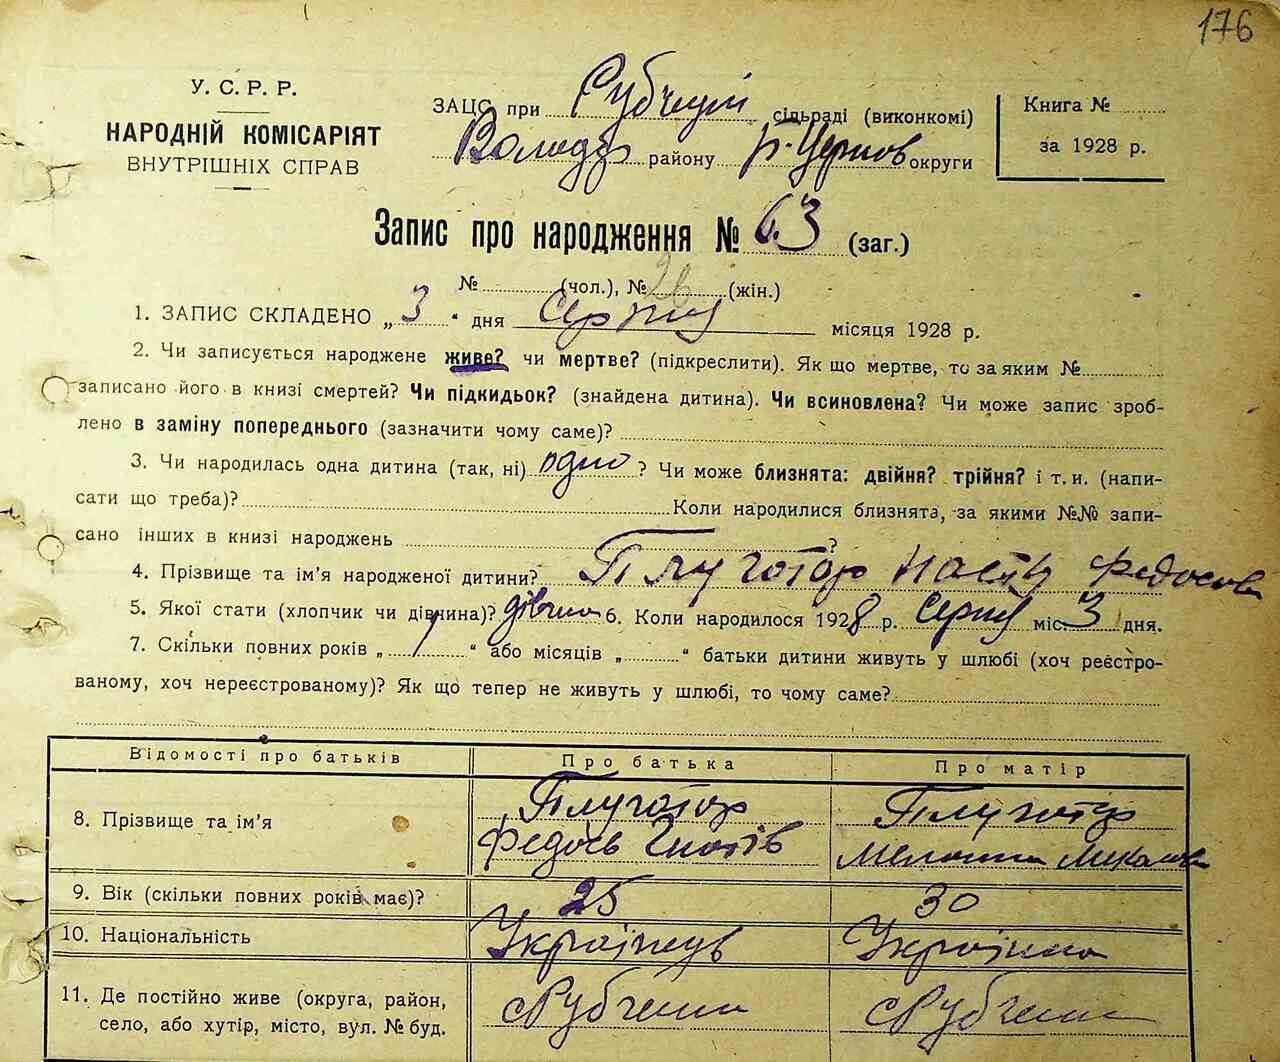 176
У. С. Р. Р.
НАРОДНІЙ КОМІСАРІЯТ
ВНУТРІШНІХ СПРАВ
ЗАЦС при Рубченській сільраді (виконкомі)
Володар району Б-Церков округи
Книга №
за 1928 р.
Запис про народження № 63 (заг.)
№ (чол.), № 26 (жін.)
1. ЗАПИС СКЛАДЕНО „3“ дня Серпня місяця 1928 р.
2. Чи записується народжене живе? чи мертве? (підкреслити). Як що мертве, то за яким №
записано його в книзі смертей? Чи підкидьок? (знайдена дитина). Чи всиновлена? Чи може запис зроб-
лено в заміну попереднього (зазначити чому саме)?
3. Чи народилась одна дитина (так, ні) одно ? Чи може близнята: двійня? трійня? і т. и. (напи-
сати що треба)? Коли народилися близнята, за якими №№ запи-
сано інших в книзі народжень ?
4. Прізвище та ім’я народженої дитини? Плуготор Настя Федосів
5. Якої стати (хлопчик чи дівчина)? дівчина 6. Коли народилося 1928 р. Серпня міс. 3 дня.
7. Скільки повних років „ 7 “ або місяців „ “ батьки дитини живуть у шлюбі (хоч реєстро-
ваному, хоч нереєстрованому)? Як що тепер не живуть у шлюбі, то чому саме?
Відомості про батьків Про батька Про матір
8. Прізвище та ім’я Плуготор Федось Гнатів Плуготор Меланія
9. Вік (скільки повних років має)? 25 30
10. Національність Українець Українка
11. Де постійно живе (округа, район,
село, або хутір, місто, вул. № буд. с Рубченки с Рубченки